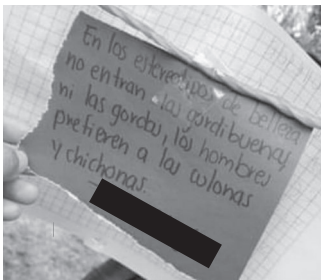 En los estereotipos de belleza
no entran las gordibuenas
ni las gordas, los hombres
prefieren a las culonas
y chichonas.